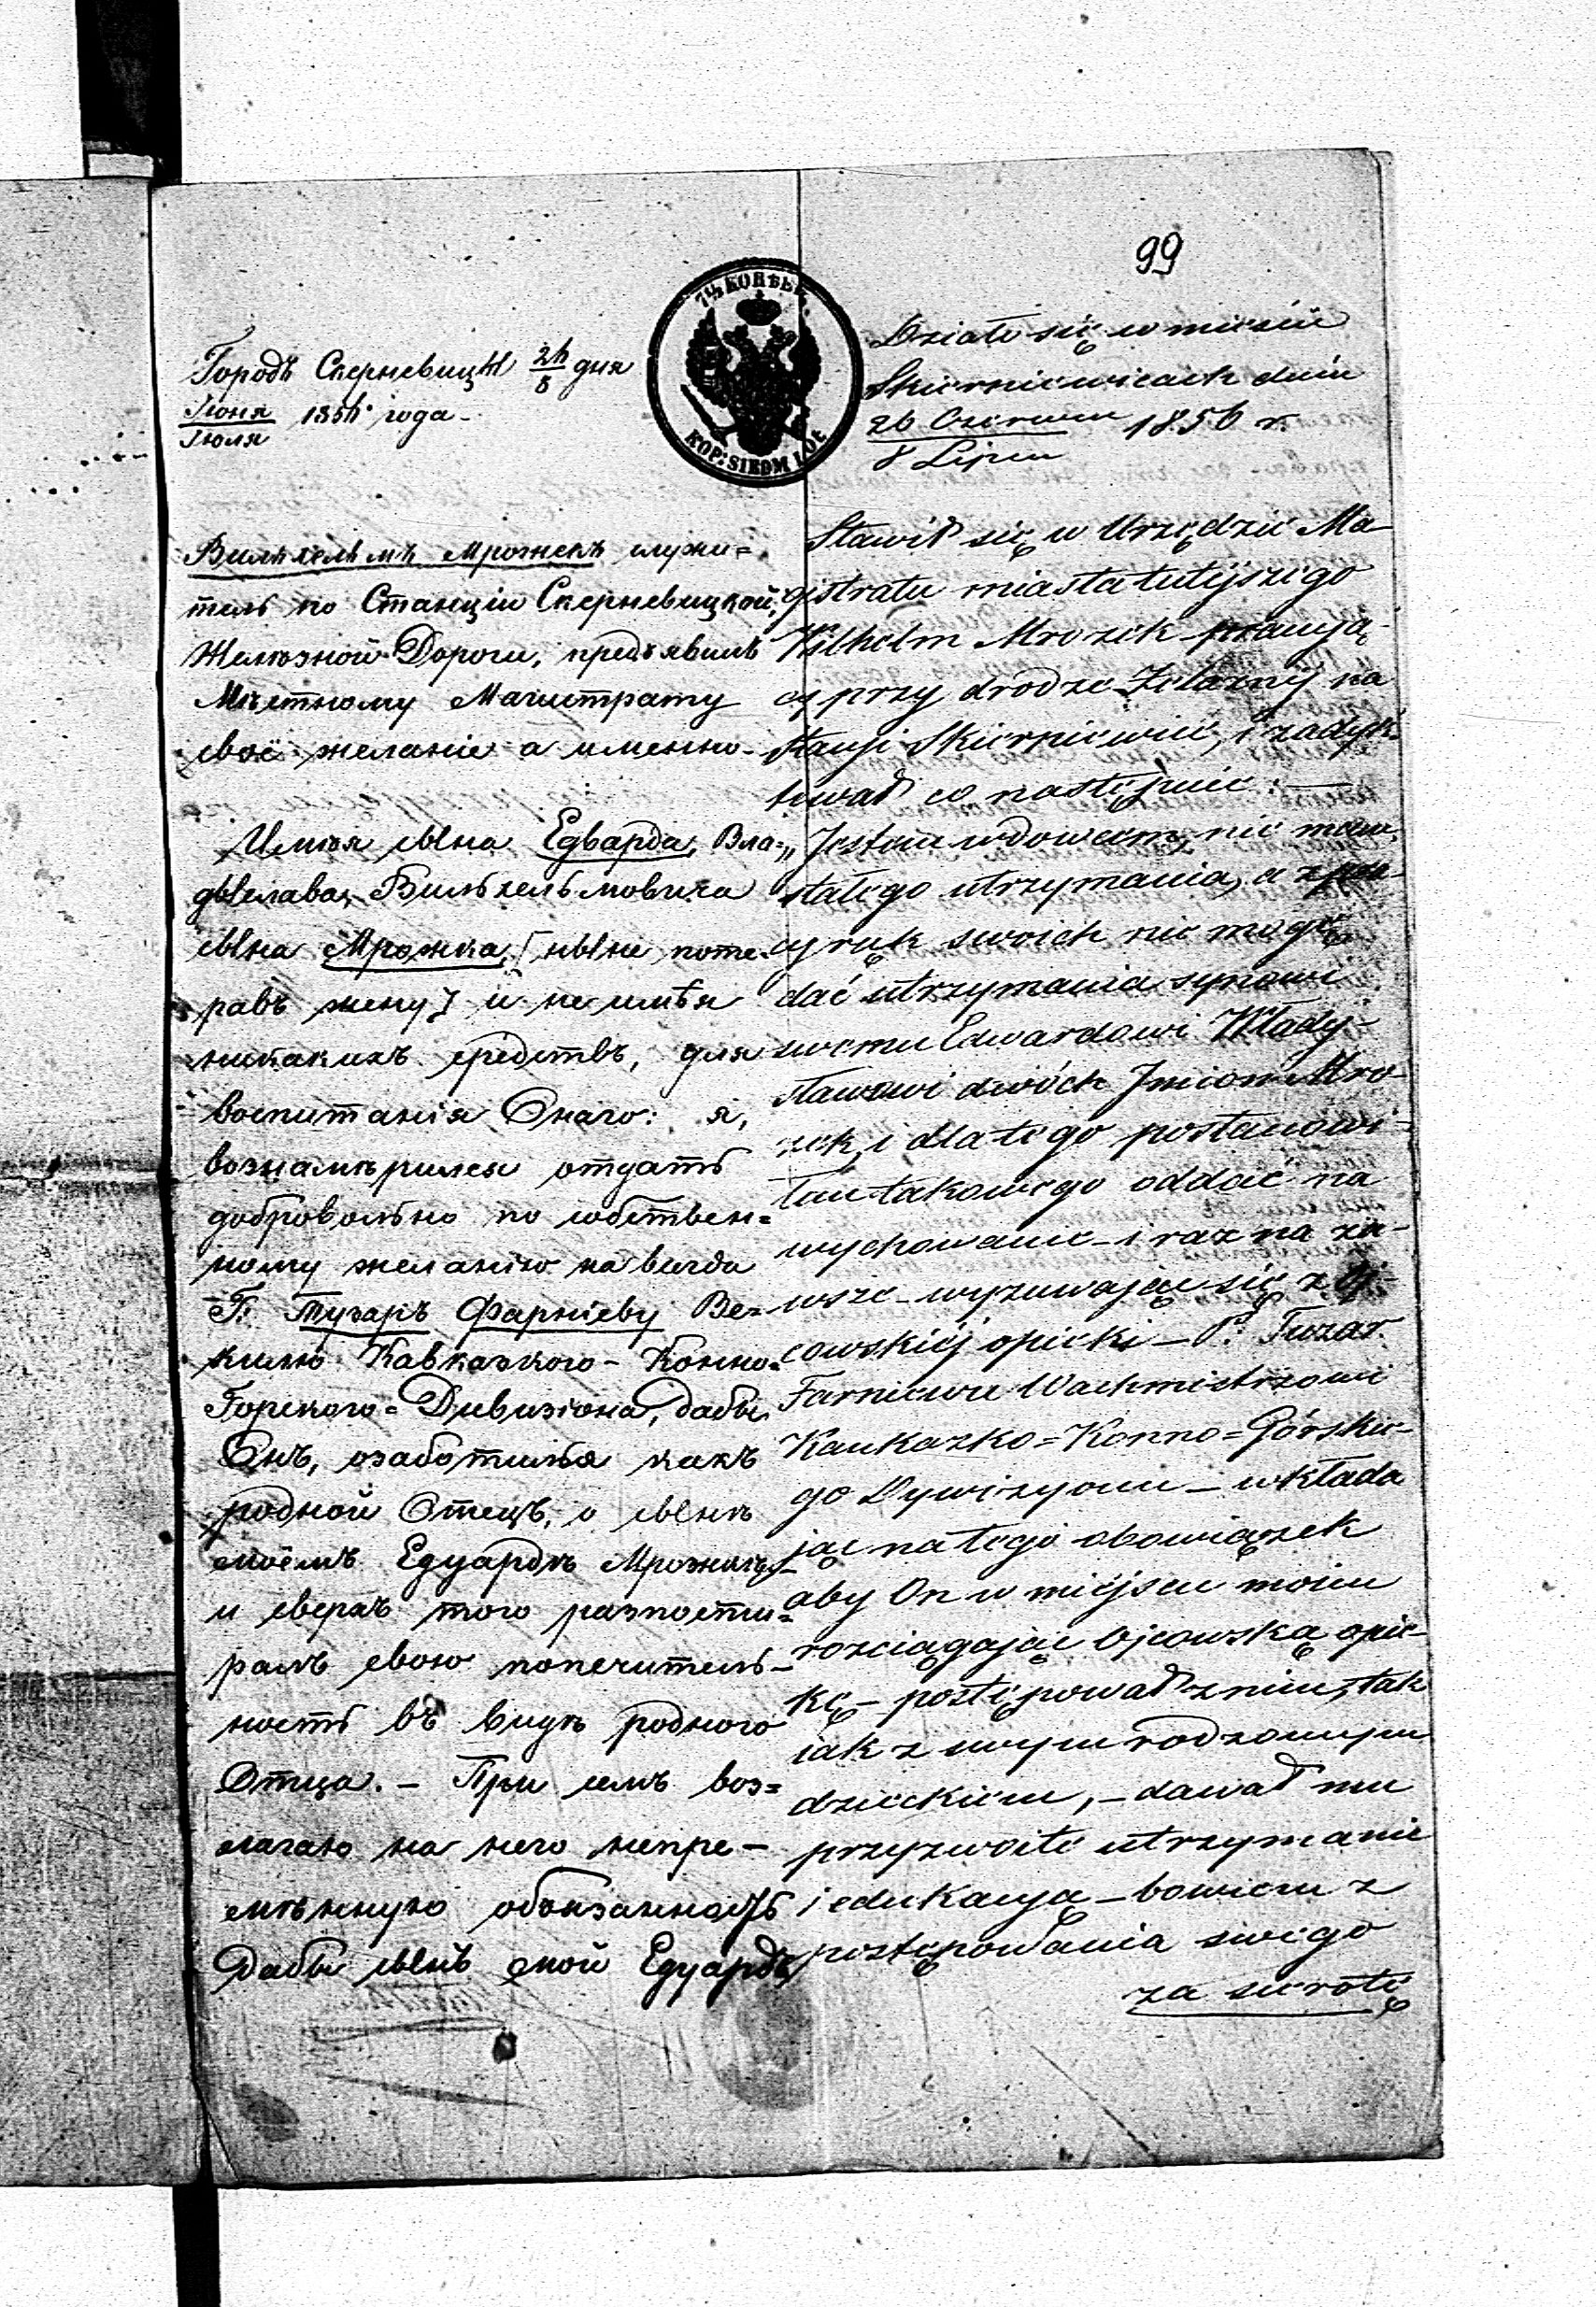 99
7½ КОПѢЕКЪ
KOP: SIEDM I PÓŁ
Городъ Скерневицы 26/8 дня
Іюня/Іюля 1856 года.
Вильхельмъ Мрожекъ служи=
тель по Станціи Скерневицкой,
Желѣзной Дороги, предъявилъ
Мѣстному Магистрату
своё желаніе а именно.
Имѣя сына Едварда, Вла=
дыслава, Вильхельмовича
сына Мрожка, [ныне поте=
равъ жену] и не имѣя
никакихъ средствъ, для
воспитанія Онаго: я,
вознамѣрился отдать
добровольно по собствен=
ному желанію на всегда
Г: Тузаръ Фарніеву Ве=
килю Кавказкого-Конно=
Горского=Дивизіона, дабы
Онъ, озаботился какъ
родной Отецъ, о сынѣ
моёмъ Едуардѣ Мрожекъ,
и сверхъ того разпости=
ралъ свою попечитель-
ность въ видѣ родного
Отца. - При семъ воз=
лагаю на него непре-
мѣнную обязанность
Дабы сынъ мой Едуардъ
Działo się w mieście
Skierniewicach dnia
26 Czerwca/8 Lipca 1856 r.
Stawił się w Urzędzie Ma-
gistratu miasta tutejszego
Wilhelm Mrozek pracują-
cy przy drodze Żelaznej na
Stacyi Skierniewice, i zadyk-
tował co następuie:
„Jestem wdowcem, nie mam
stałego utrzymania, a z pra-
cy rąk swoich nie mogę
dać utrzymania synowi
swemu Edwardowi Włady-
sławowi dwóch Imion Mro-
zek, i dla tego postanowi-
łem takowego oddać na
wychowanie - i raz na za-
wsze - wyzuwając się z Oj-
cowskiéj opieki - P. Tuzar.
Farniewu Wachmistrzowi
Kaukazko=Konno=Górskie-
go Dywizyonu - wkłada
jąc na tego obowiązek
aby On w miejscu moim
rozciągając Ojcowską opie-
kę - postępował z nim, tak
iak z swym rodzonym
dzieckiem, - dawał mu
przyzwoite utrzymanie
i edukacyą - bowiem z
postępowania swego
za sierotę